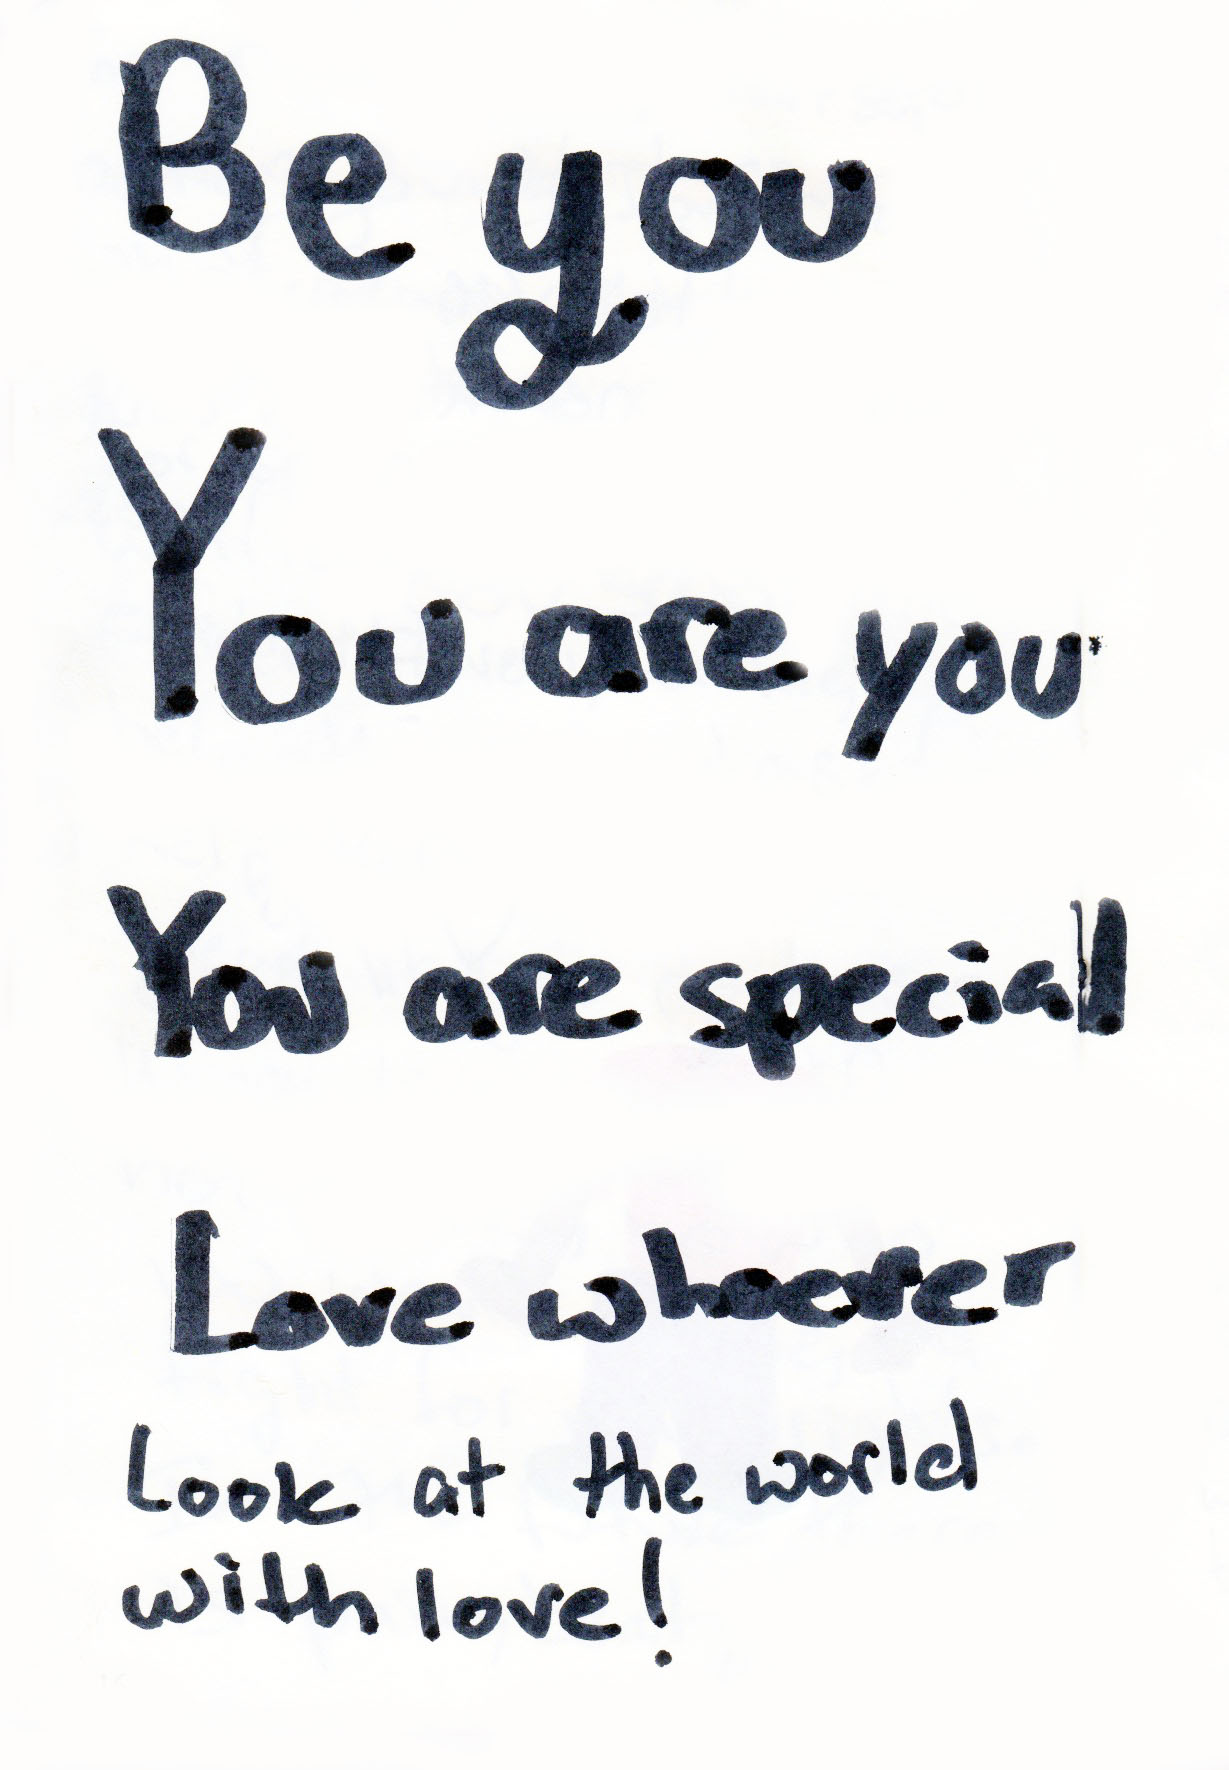 Be you
You are you
You are special
Love whoever
Look at the world
with love!